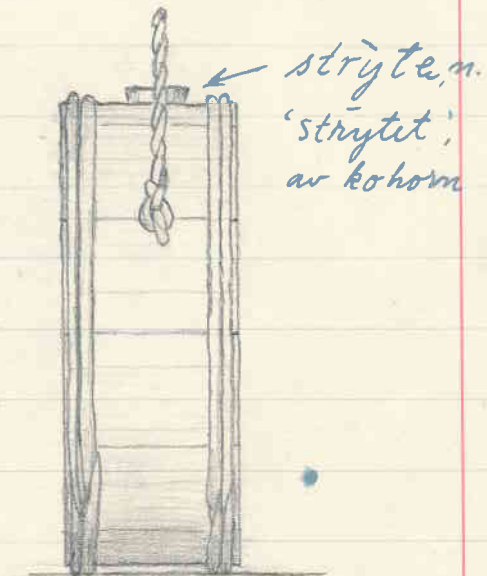 strỳte, n.
'strytet',
av kohorn